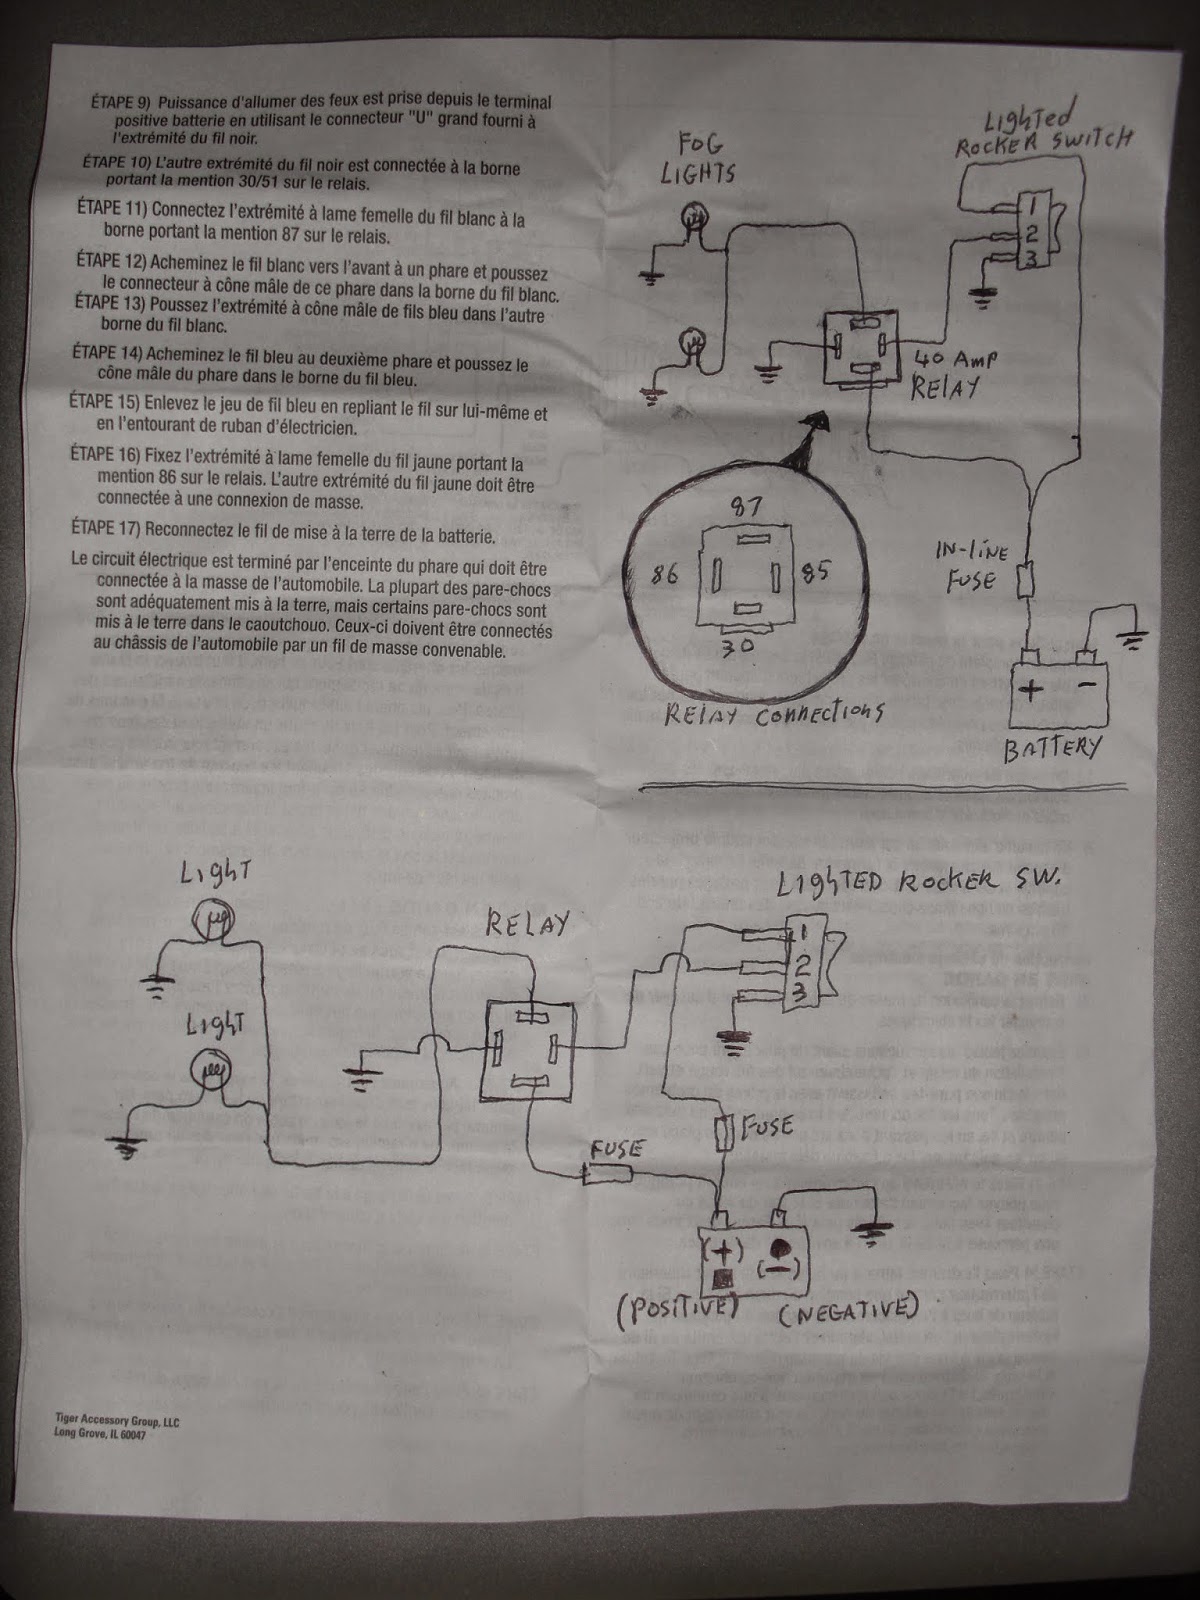 ÉTAPE 9) Puissance d'allumer des feux est prise depuis le terminal
positive batterie en utilisant le connecteur "U" grand fourni à
l'extrémité du fil noir.
ÉTAPE 10) L'autre extrémité du fil noir est connectée à la borne
portant la mention 30/51 sur le relais.
ÉTAPE 11) Connectez l'extrémité à lame femelle du fil blanc à la
borne portant la mention 87 sur le relais.
ÉTAPE 12) Acheminez le fil blanc vers l'avant à un phare et poussez
le connecteur à cône mâle de ce phare dans la borne du fil blanc.
ÉTAPE 13) Poussez l'extrémité à cône mâle de fils bleu dans l'autre
borne du fil blanc.
ÉTAPE 14) Acheminez le fil bleu au deuxième phare et poussez le
cône mâle du phare dans le borne du fil bleu.
ÉTAPE 15) Enlevez le jeu de fil bleu en repliant le fil sur lui-même et
en l'entourant de ruban d'électricien.
ÉTAPE 16) Fixez l'extrémité à lame femelle du fil jaune portant la
mention 86 sur le relais. L'autre extrémité du fil jaune doit être
connectée à une connexion de masse.
ÉTAPE 17) Reconnectez le fil de mise à la terre de la batterie.
Le circuit électrique est terminé par l'enceinte du phare qui doit être
connectée à la masse de l'automobile. La plupart des pare-chocs
sont adéquatement mis à la terre, mais certains pare-chocs sont
mis à le terre dans le caoutchouo. Ceux-ci doivent être connectés
au châssis de l'automobile par un fil de masse convenable.
FOG
LIGHTS
LigHTed
ROCKER SWITCH
1
2
3
40 Amp
RELAY
87
86
85
30
RELAY CONNECTIONS
IN-LINE
FUSE
+ -
BATTERY
LighT
LighT
RELAY
LIGHTED ROCKER SW.
1
2
3
FUSE
FUSE
(+) (-)
(POSITIVE) (NEGATIVE)
Tiger Accessory Group, LLC
Long Grove, IL 60047